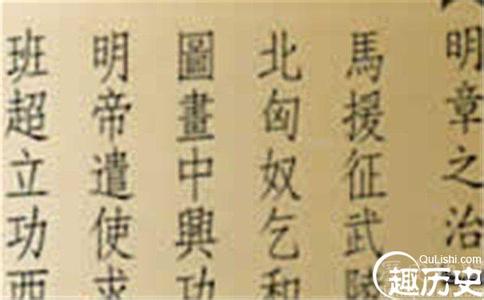 【明章之治
馬援征武陵
北匈奴乞和
圖畫中興功
明帝遣使求
班超立功西
QuLishi.com
趣历史